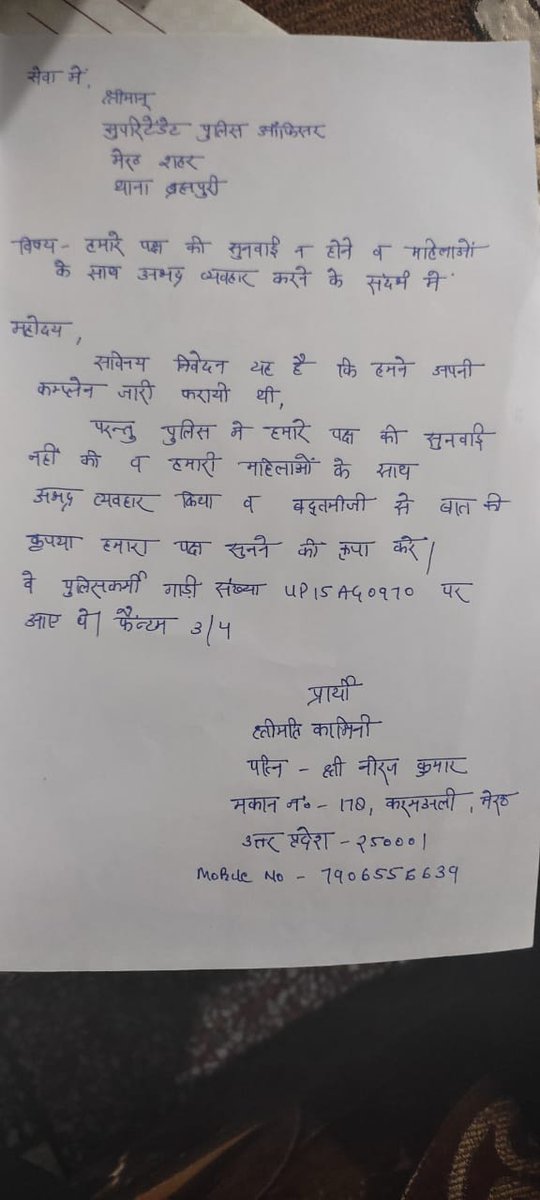 सेवा में,
श्रीमान्
सुपरिटेंडेंट पुलिस ऑफिसर
मेरठ शहर
थाना ब्रह्मपुरी
विषय - हमारे पक्ष की सुनवाई न होने व महिलाओं
के साथ अभद्र व्यवहार करने के संदर्भ में
महोदय,
सविनय निवेदन यह है कि हमने अपनी
कम्प्लेन जारी करायी थी,
परन्तु पुलिस ने हमारे पक्ष की सुनवाई
नहीं की व हमारी महिलाओं के साथ
अभद्र व्यवहार किया व बद्तमीजी से बात की
कृपया हमारा पक्ष सुनने की कृपा करे।
वे पुलिसकर्मी गाड़ी संख्या UP15AG0970 पर
आए थे। फैन्टम 3/4
प्रार्थी
श्रीमति कामिनी
पत्नि - श्री नीरज कुमार
मकान नं० - 178, करमअली, मेरठ
उत्तर प्रदेश - 250001
Mobile No - 7906556639